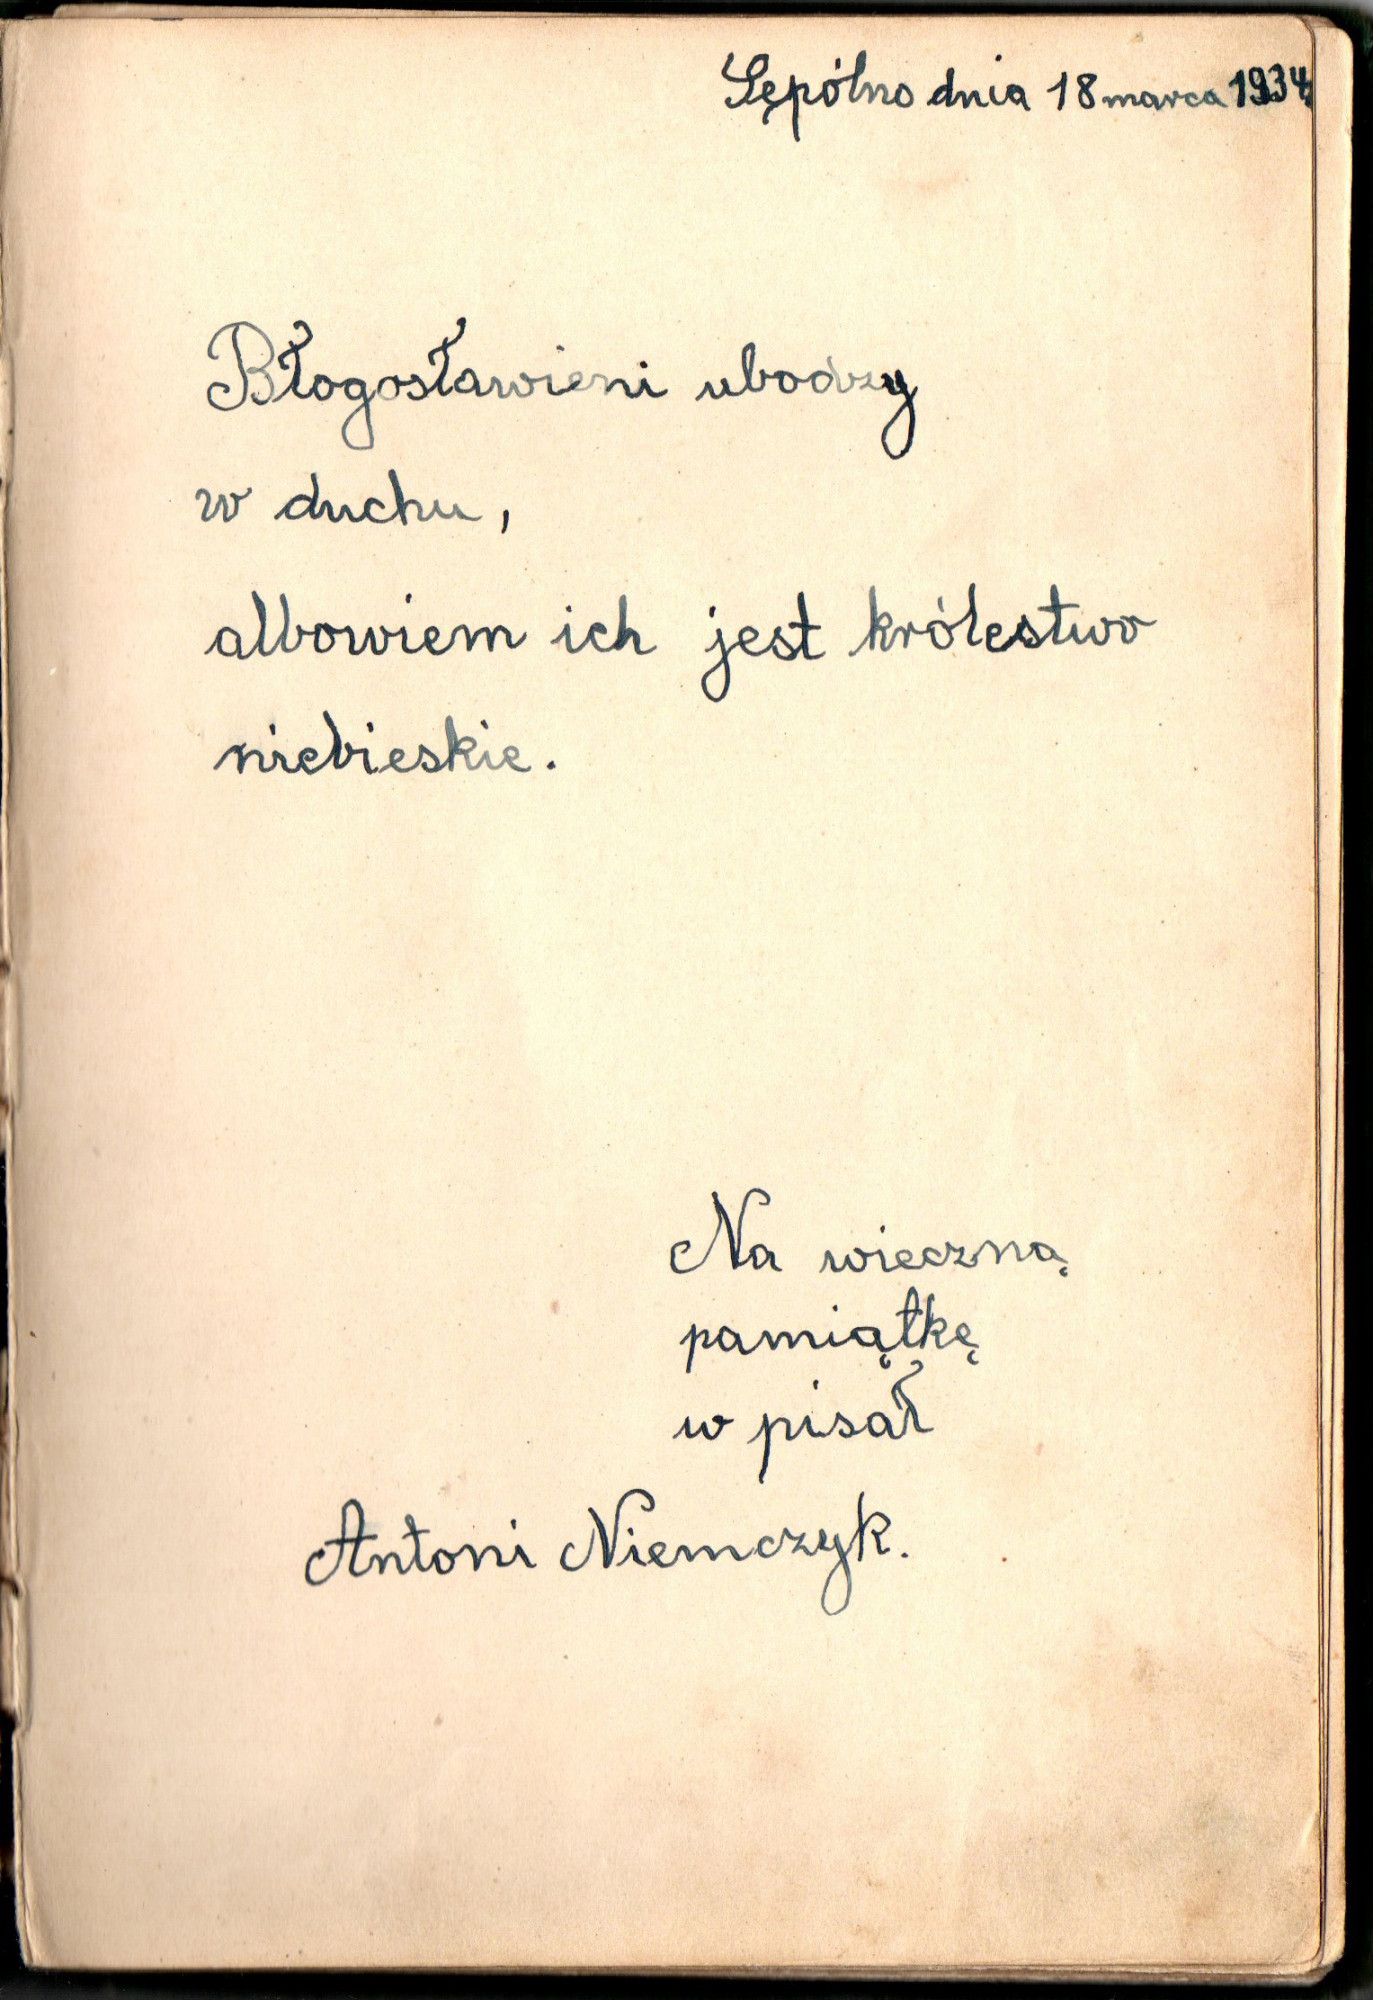 Sępólno dnia 18 marca 1934
Błogosławieni ubodzy
w duchu,
albowiem ich jest królestwo
niebieskie.
Na wieczną
pamiątkę
w pisał
Antoni Niemczyk.